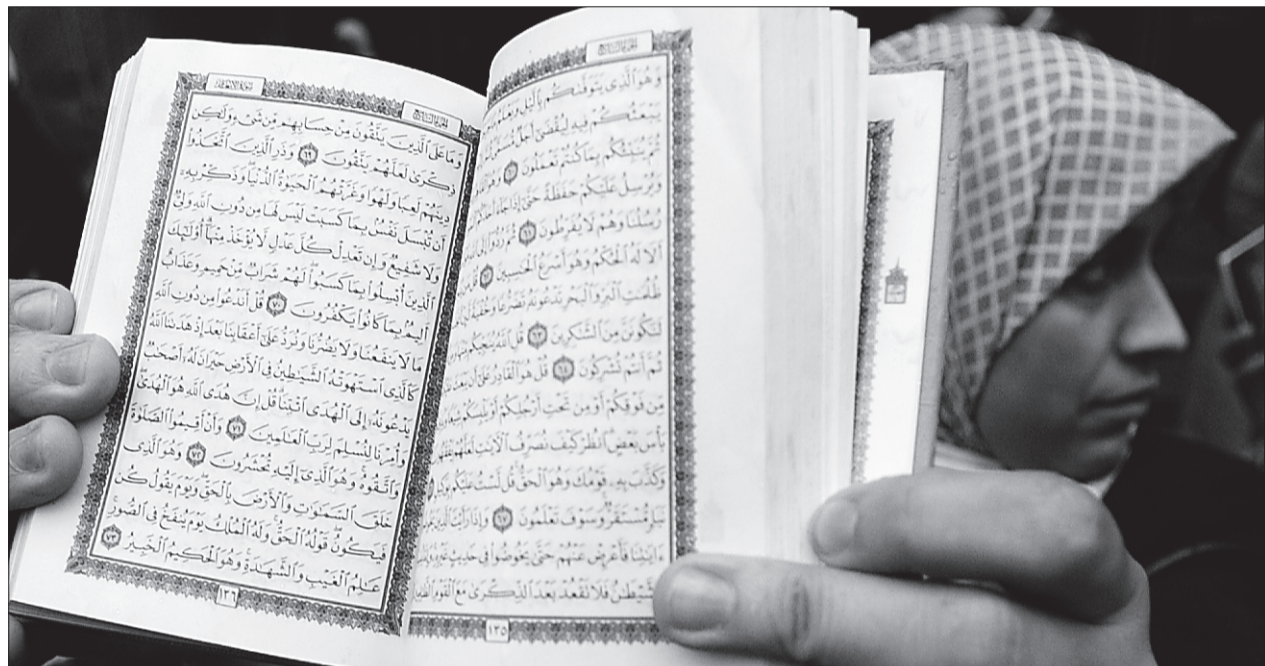 الجزء السابع
وَهُوَ ٱلَّذِى يَتَوَفَّىٰكُم بِٱلَّيْلِ وَيَعْلَمُ
يَبْعَثُكُمْ فِيهِ لِيُقْضَىٰٓ أَجَلٌ مُّسَمًّى
ثُمَّ يُنَبِّئُكُم بِمَا كُنتُمْ تَعْمَلُونَ ٦٠ وَهُوَ
وَيُرْسِلُ عَلَيْكُمْ حَفَظَةً حَتَّىٰٓ إِذَا جَآءَ أَحَدَكُمُ
رُسُلُنَا وَهُمْ لَا يُفَرِّطُونَ ٦١ ثُمَّ رُدُّوٓا۟ إِلَى
أَلَا لَهُ ٱلْحُكْمُ وَهُوَ أَسْرَعُ ٱلْحَٰسِبِينَ ٦٢ قُلْ مَن
ظُلُمَٰتِ ٱلْبَرِّ وَٱلْبَحْرِ تَدْعُونَهُۥ تَضَرُّعًا وَخُفْيَةً
لَنَكُونَنَّ مِنَ ٱلشَّٰكِرِينَ ٦٣ قُلِ ٱللَّهُ يُنَجِّيكُم مِّنْهَا
ثُمَّ أَنتُمْ تُشْرِكُونَ ٦٤ قُلْ هُوَ ٱلْقَادِرُ عَلَىٰٓ أَن
مِّن فَوْقِكُمْ أَوْ مِن تَحْتِ أَرْجُلِكُمْ أَوْ يَلْبِسَكُمْ شِيَعًا
بَأْسَ بَعْضٍ ٱنظُرْ كَيْفَ نُصَرِّفُ ٱلْءَايَٰتِ لَعَلَّهُمْ
وَكَذَّبَ بِهِۦ قَوْمُكَ وَهُوَ ٱلْحَقُّ قُل لَّسْتُ عَلَيْكُم بِوَكِيلٍ
نَبَإٍ مُّسْتَقَرٌّ وَسَوْفَ تَعْلَمُونَ ٦٧ وَإِذَا رَأَيْتَ ٱلَّذِينَ
ءَايَٰتِنَا فَأَعْرِضْ عَنْهُمْ حَتَّىٰ يَخُوضُوا۟ فِى حَدِيثٍ غَيْرِهِۦ
ٱلشَّيْطَٰنُ فَلَا تَقْعُدْ بَعْدَ ٱلذِّكْرَىٰ مَعَ ٱلْقَوْمِ
١٣٥
الجزء السابع
سورة الأنعام
وَمَا عَلَى ٱلَّذِينَ يَتَّقُونَ مِنْ حِسَابِهِم مِّن شَىْءٍ وَلَٰكِن
ذِكْرَىٰ لَعَلَّهُمْ يَتَّقُونَ ٦٩ وَذَرِ ٱلَّذِينَ ٱتَّخَذُوا۟
دِينَهُمْ لَعِبًا وَلَهْوًا وَغَرَّتْهُمُ ٱلْحَيَوٰةُ ٱلدُّنْيَا وَذَكِّرْ بِهِۦٓ
أَن تُبْسَلَ نَفْسٌۢ بِمَا كَسَبَتْ لَيْسَ لَهَا مِن دُونِ ٱللَّهِ وَلِىٌّ
وَلَا شَفِيعٌ وَإِن تَعْدِلْ كُلَّ عَدْلٍ لَّا يُؤْخَذْ مِنْهَآ أُو۟لَٰٓئِكَ
ٱلَّذِينَ أُبْسِلُوا۟ بِمَا كَسَبُوا۟ لَهُمْ شَرَابٌ مِّنْ حَمِيمٍ وَعَذَابٌ
أَلِيمٌۢ بِمَا كَانُوا۟ يَكْفُرُونَ ٧٠ قُلْ أَنَدْعُوا۟ مِن دُونِ ٱللَّهِ
مَا لَا يَنفَعُنَا وَلَا يَضُرُّنَا وَنُرَدُّ عَلَىٰٓ أَعْقَابِنَا بَعْدَ إِذْ هَدَىٰنَا ٱللَّهُ
كَٱلَّذِى ٱسْتَهْوَتْهُ ٱلشَّيَٰطِينُ فِى ٱلْأَرْضِ حَيْرَانَ لَهُۥٓ أَصْحَٰبٌ
يَدْعُونَهُۥٓ إِلَى ٱلْهُدَى ٱئْتِنَا قُلْ إِنَّ هُدَى ٱللَّهِ هُوَ ٱلْهُدَىٰ
وَأُمِرْنَا لِنُسْلِمَ لِرَبِّ ٱلْعَٰلَمِينَ ٧١ وَأَنْ أَقِيمُوا۟ ٱلصَّلَوٰةَ
وَٱتَّقُوهُ وَهُوَ ٱلَّذِىٓ إِلَيْهِ تُحْشَرُونَ ٧٢ وَهُوَ ٱلَّذِى
خَلَقَ ٱلسَّمَٰوَٰتِ وَٱلْأَرْضَ بِٱلْحَقِّ وَيَوْمَ يَقُولُ كُن
فَيَكُونُ قَوْلُهُ ٱلْحَقُّ وَلَهُ ٱلْمُلْكُ يَوْمَ يُنفَخُ فِى ٱلصُّورِ
عَٰلِمُ ٱلْغَيْبِ وَٱلشَّهَٰدَةِ وَهُوَ ٱلْحَكِيمُ ٱلْخَبِيرُ ٧٣
١٣٦